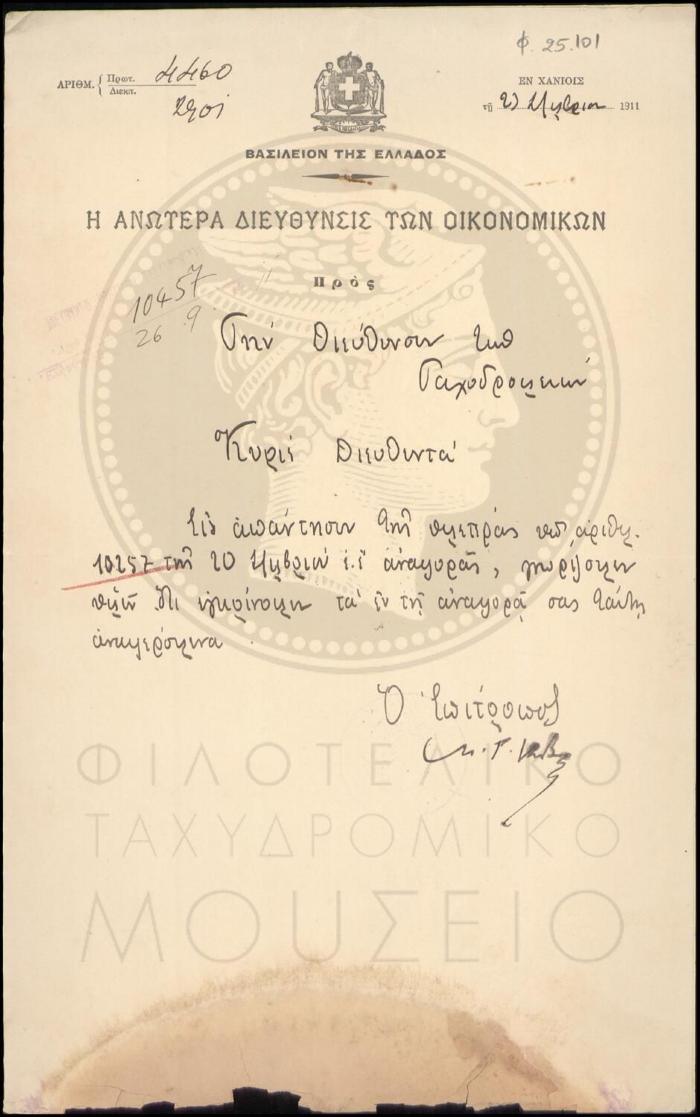 Φ. 25.101
ΑΡΙΘΜ. { Πρωτ. 4460
Διεκπ.
ΕΝ ΧΑΝΙΟΙΣ
τῇ 1911
ΒΑΣΙΛΕΙΟΝ ΤΗΣ ΕΛΛΑΔΟΣ
Η ΑΝΩΤΕΡΑ ΔΙΕΥΘΥΝΣΙΣ ΤΩΝ ΟΙΚΟΝΟΜΙΚΩΝ
Πρὸς
10457
26 9
Τὴν Διεύθυνσιν τῶν
Ταχυδρομείων
Κύριε Διευθυντά
Εἰς ἀπάντησιν τῆς ὑμετέρας ὑπ' ἀριθμ.
10257 τῆς 20 7μβρίου ἀναφορᾶς, γνωρίζομεν
ὑμῖν ὅτι ἐγκρίνομεν τὰ ἐν τῇ ἀναφορᾷ σας ταύτῃ
ἀναφερόμενα
Ὁ Ἐπίτροπος
ΦΙΛΟΤΕΛΙΚΟ
ΤΑΧΥΔΡΟΜΙΚΟ
ΜΟΥΣΕΙΟ